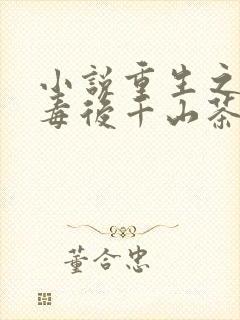 小說重生之
毒後千山茶
董合忠